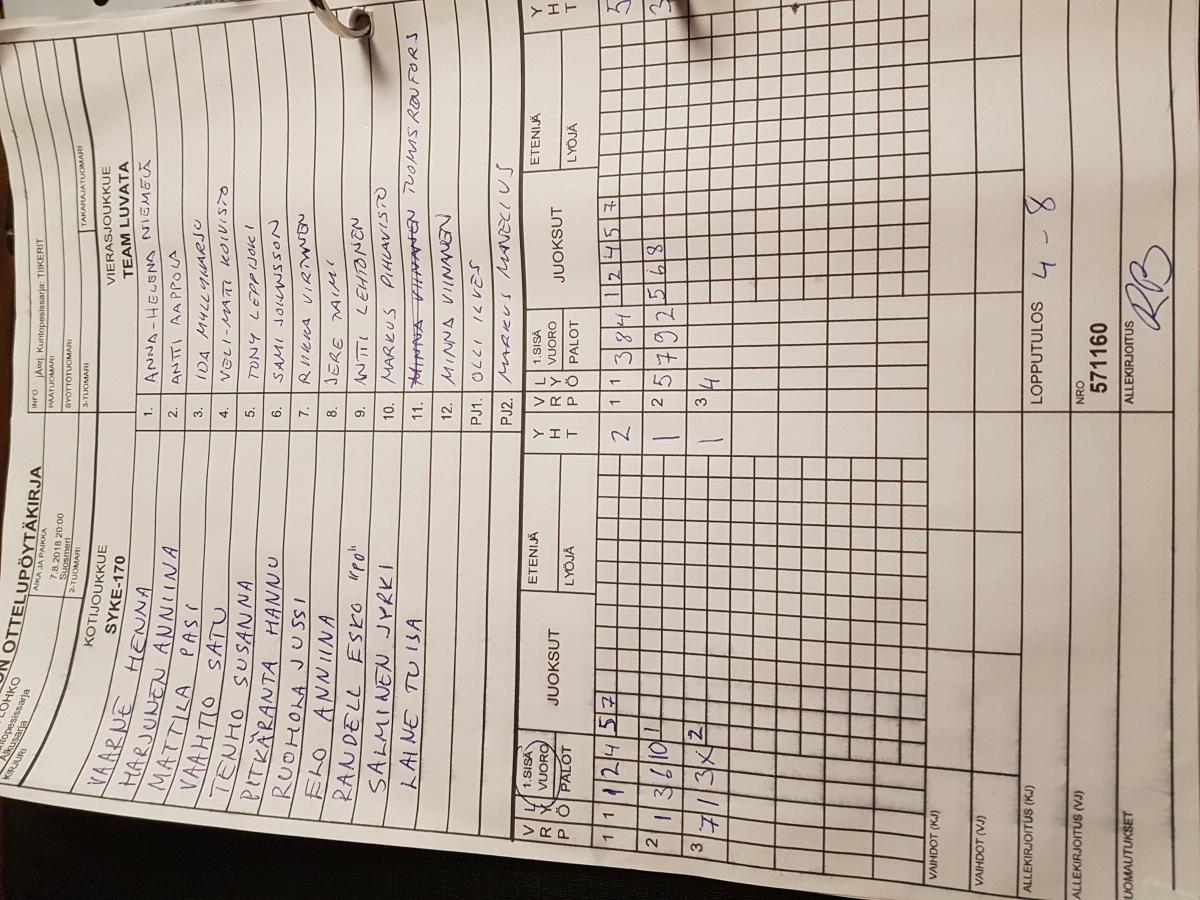 OTTELUPÖYTÄKIRJA
LOHKO
Alkusarja
KIRJURI
AIKA JA PAIKKA
7.8.2018 20:00
Suosmeri
2-TUOMARI
INFO
Kuntopesissarja: TIIKERIT
PÄÄTUOMARI
SYÖTTÖTUOMARI
3-TUOMARI
TAKARAJATUOMARI
KOTIJOUKKUE
SYKE-170
VAARNE HENNA
HARJUNEN ANNIINA
MATTILA PASI
VAAHTIO SATU
TENHO SUSANNA
PITKÄRANTA HANNU
RUOHOLA JUSSI
ELO ANNIINA
RANDELL ESKO "PO"
SALMINEN JYRKI
LAINE TUIJA
VIERASJOUKKUE
TEAM LUVATA
1. ANNA-HELENA NIEMELÄ
2. ANTTI AAPPOLA
3. IDA MYLLYHARJU
4. VELI-MATTI KOIVISTO
5. TONY LEPPIJOKI
6. SAMI JOHNSSON
7. RIIKKA VIRTANEN
8. JERE
9. ANTTI LEHTONEN
10. MARKUS PIHLAVISTO
11. MINNA VIINANEN TUOMAS RONFORS
12. MINNA VIINANEN
PJ1. OLLI ILVES
PJ2. MARKUS MANELIUS
V R P L Y Ö 1.SISÄ VUORO PALOT JUOKSUT ETENIJÄ LYÖJÄ Y H T
1 1 1 2 4 5 7 2
2 1 3 6 10 1 1
3 7 1 3 X 2 1
V R P L Y Ö 1.SISÄ VUORO PALOT JUOKSUT ETENIJÄ LYÖJÄ Y H T
1 1 3 8 4 1 2 4 5 7 5
2 5 7 9 2 5 6 8 3
3 4
VAIHDOT (KJ)
VAIHDOT (VJ)
ALLEKIRJOITUS (KJ)
LOPPUTULOS 4 - 8
ALLEKIRJOITUS (VJ)
NRO
571160
HUOMAUTUKSET
ALLEKIRJOITUS